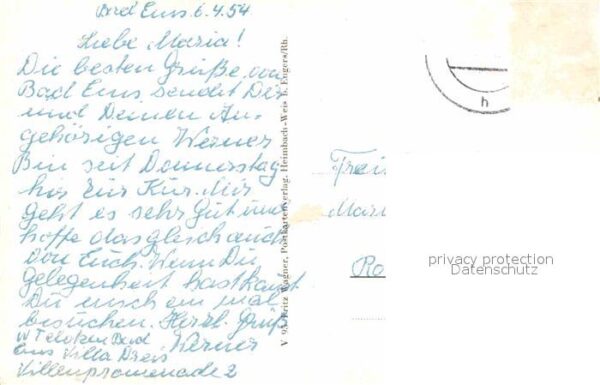 Bad Ems 6.4.54
Liebe Maria!
Die besten Grüße von
Bad Ems sendet Dir
und Deinen An-
gehörigen Werner
Bin seit Donnerstag
hir zur Kur. Mir
geht es sehr gut und
hoffe das gleich auch
von Euch. Wenn Du
gelegenheit hast kanst
Du mich ein mal
besuchen. Herzl. Grüße
Werner
W Bad
Ems Villa
Villenpromenade 2
V 95 Fritz Wagner, Postkartenverlag, Heimbach-Weis b. Engers/Rh.
h
Mari
Ro
privacy protection
Datenschutz